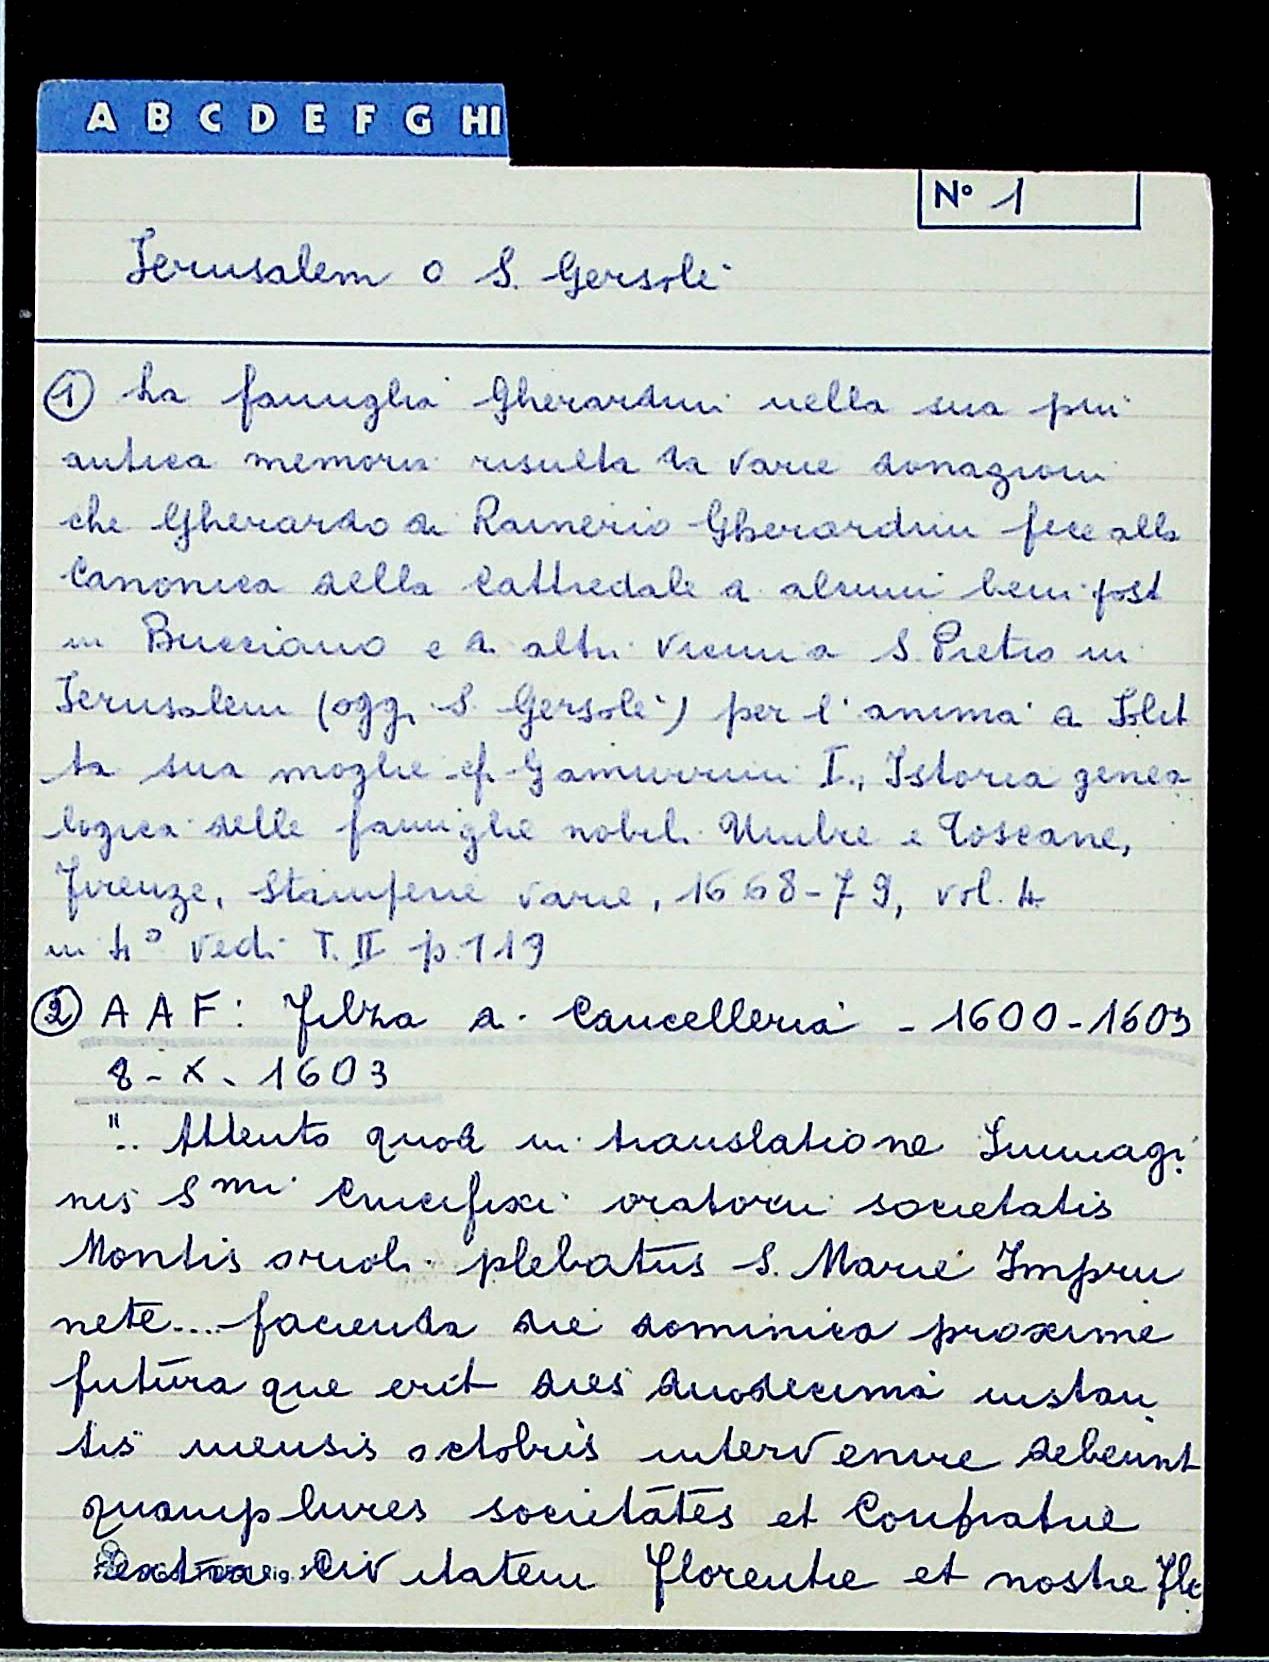 A B C D E F G HI
N° 1
Jerusalem o S. Gersolè
① La famiglia Gherardini nella sua più
antica memoria risulta da varie donazioni
che Gherardo di Rainerio Gherardini fece alla
Canonica della Cattedrale di alcuni beni post
in Bucciano e di altri vicini a S. Pietro in
Jerusalem (oggi S. Gersolè) per l'anima di
ta sua moglie cf. Gamurrini I., Istoria genea
logica delle famiglie nobili Umbre e Toscane,
Firenze, Stamperie varie, 1668-79, vol. 4
in 4° vedi T. II p. 119
② A A F: Filza di Cancelleria - 1600-1603
8-X-1603
".. Attento quod in translatione Immagi
nis Smi Crucifixi oratorii societatis
Montis orioli plebatus S. Marie Impru
nete.... facienda die dominica proxime
futura que erit dies duodecima instan
tis mensis octobris intervenire debeunt
quamplures societates et Confratrie
extra Civitatem Florentie et nostre Flo